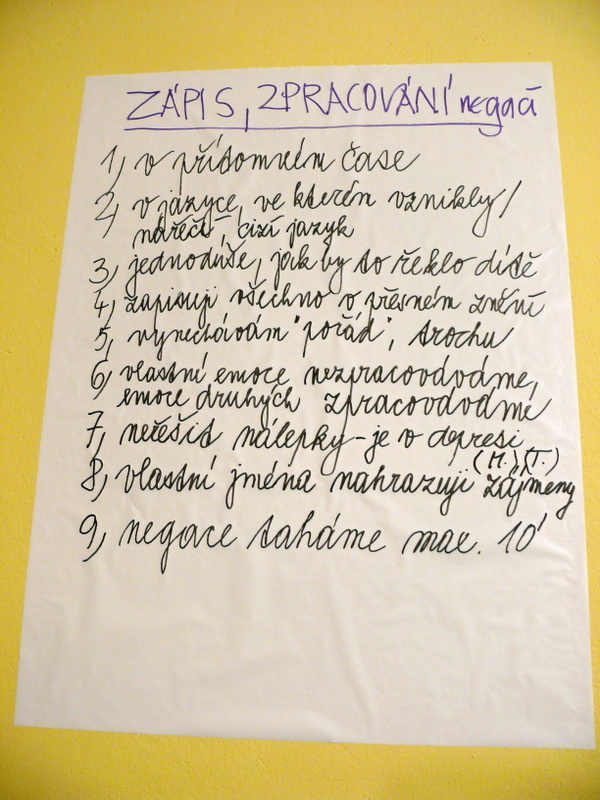 ZÁPIS, ZPRACOVÁNÍ negací
1, v přítomném čase
2, v jazyce, ve kterém vznikly/
nářečí - cizí jazyk
3, jednoduše, jak by to řeklo dítě
4, zapisuji všechno v přesném znění
5, vynechávám "pořád", trochu
6, vlastní emoce nezpracováváme,
emoce druhých zpracováváme
7, neřešit nálepky - je v depresi
(M.), (T.)
8, vlastní jména nahrazuji zájmeny
9, negace taháme max. 10'